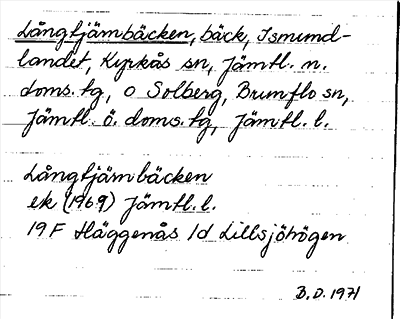 Långtjärnbäcken, bäck, Ismund-
landet, Kyrkås sn, Jämtl. n.
doms. tg, o Solberg, Brunflo sn,
Jämtl. ö. doms. tg, Jämtl. l.
Långtjärnbäcken
ek (1969) Jämtl. l.
19 F Häggenås 1d Lillsjöhögen
B.D. 1971